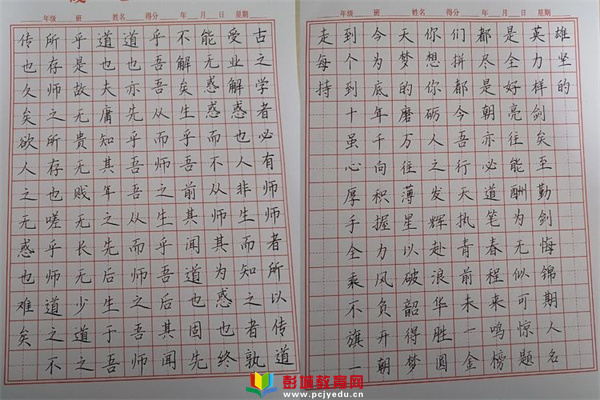 年级 班 姓名 得分 年 月 日 星期
古之学者必有师师者所以传道
受业解惑也人非生而知之者孰
能无惑惑而不从师其为惑也终
不解矣生乎吾前其闻道也固先
乎吾吾从而师之生乎吾后其闻
道也亦先乎吾吾从而师之吾师
道也夫庸知其年之先后生于吾
乎是故无贵无贱无长无少道之
所存师之所存也嗟乎师道之不
传也久矣欲人之无惑也难矣
年级 班 姓名 得分 年 月 日 星期
走到今天你们都是英雄
每个为梦想拼尽全力坚
持到底的你都是好样的
十年磨砺今朝亮剑
虽千万人吾亦往矣
心向往之行必能至
厚积薄发天道酬勤
手握星辉执笔为剑
全力以赴青春无悔
乘风破浪前程似锦
不负韶华未来可期
旗开得胜一鸣惊人
一朝梦圆金榜题名
彭城教育网
www.pcjyedu.cn